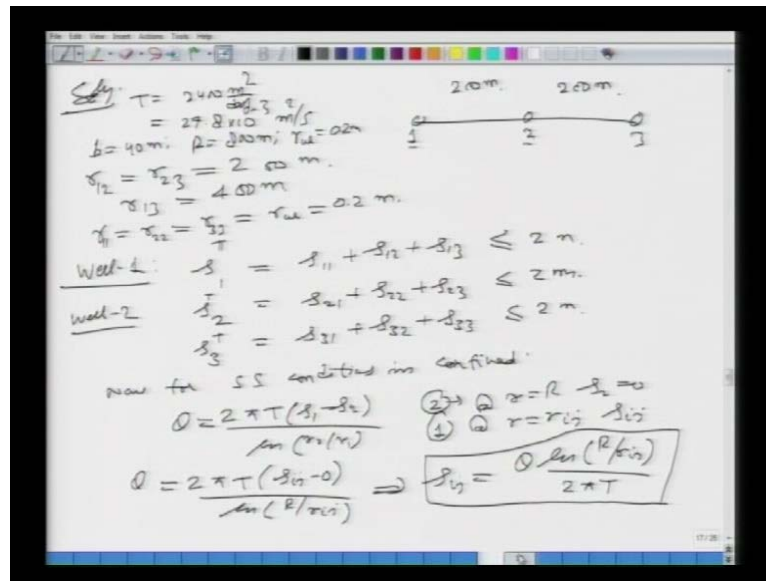 File Edit View Insert Actions Tools Help
Soln. T = 2400 m²/day
= 27.8×10⁻³ m²/s
b = 40 m; R = 800 m; r_w = 0.2 m
200 m. 200 m.
1 2 3
r₁₂ = r₂₃ = 200 m.
r₁₃ = 400 m
r₁₁ = r₂₂ = r₃₃ = r_w = 0.2 m.
Well-1: s₁ᵀ = s₁₁ + s₁₂ + s₁₃ ≤ 2 m.
Well-2 s₂ᵀ = s₂₁ + s₂₂ + s₂₃ ≤ 2 m.
s₃ᵀ = s₃₁ + s₃₂ + s₃₃ ≤ 2 m
Now for SS condition in confined.
Q = 2πT(s₁-s₂) / ln(r₂/r₁)
② → @ r=R s₂=0
① @ r=rᵢⱼ sᵢⱼ
Q = 2πT(sᵢⱼ-0) / ln(R/rᵢⱼ) ⇒ sᵢⱼ = Q ln(R/rᵢⱼ) / 2πT